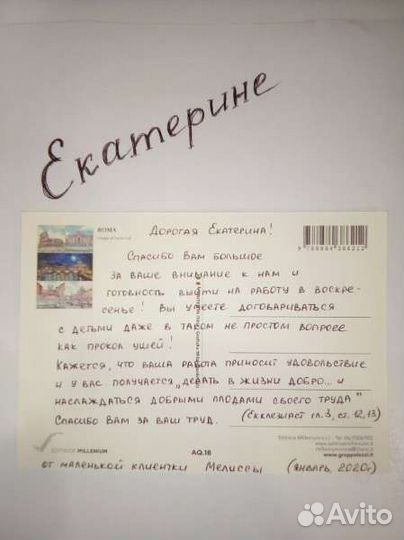 Екатерине
ROMA
Дорогая Екатерина!
Спасибо Вам большое
за ваше внимание к нам и
готовность выйти на работу в воскре-
сенье! Вы умеете договариваться
с детьми даже в таком не простом вопросе
как прокол ушей!
Кажется, что ваша работа приносит удовольствие
и у вас получается „делать в жизни добро... и
наслаждаться добрыми плодами своего труда"
Спасибо Вам за ваш труд. (Екклезиаст гл. 3, ст. 12,13)
MILLENIUM
AQ.18
www.gruppolozzi.it
от маленькой клиентки Мелиссы (январь, 2020г)
Avito